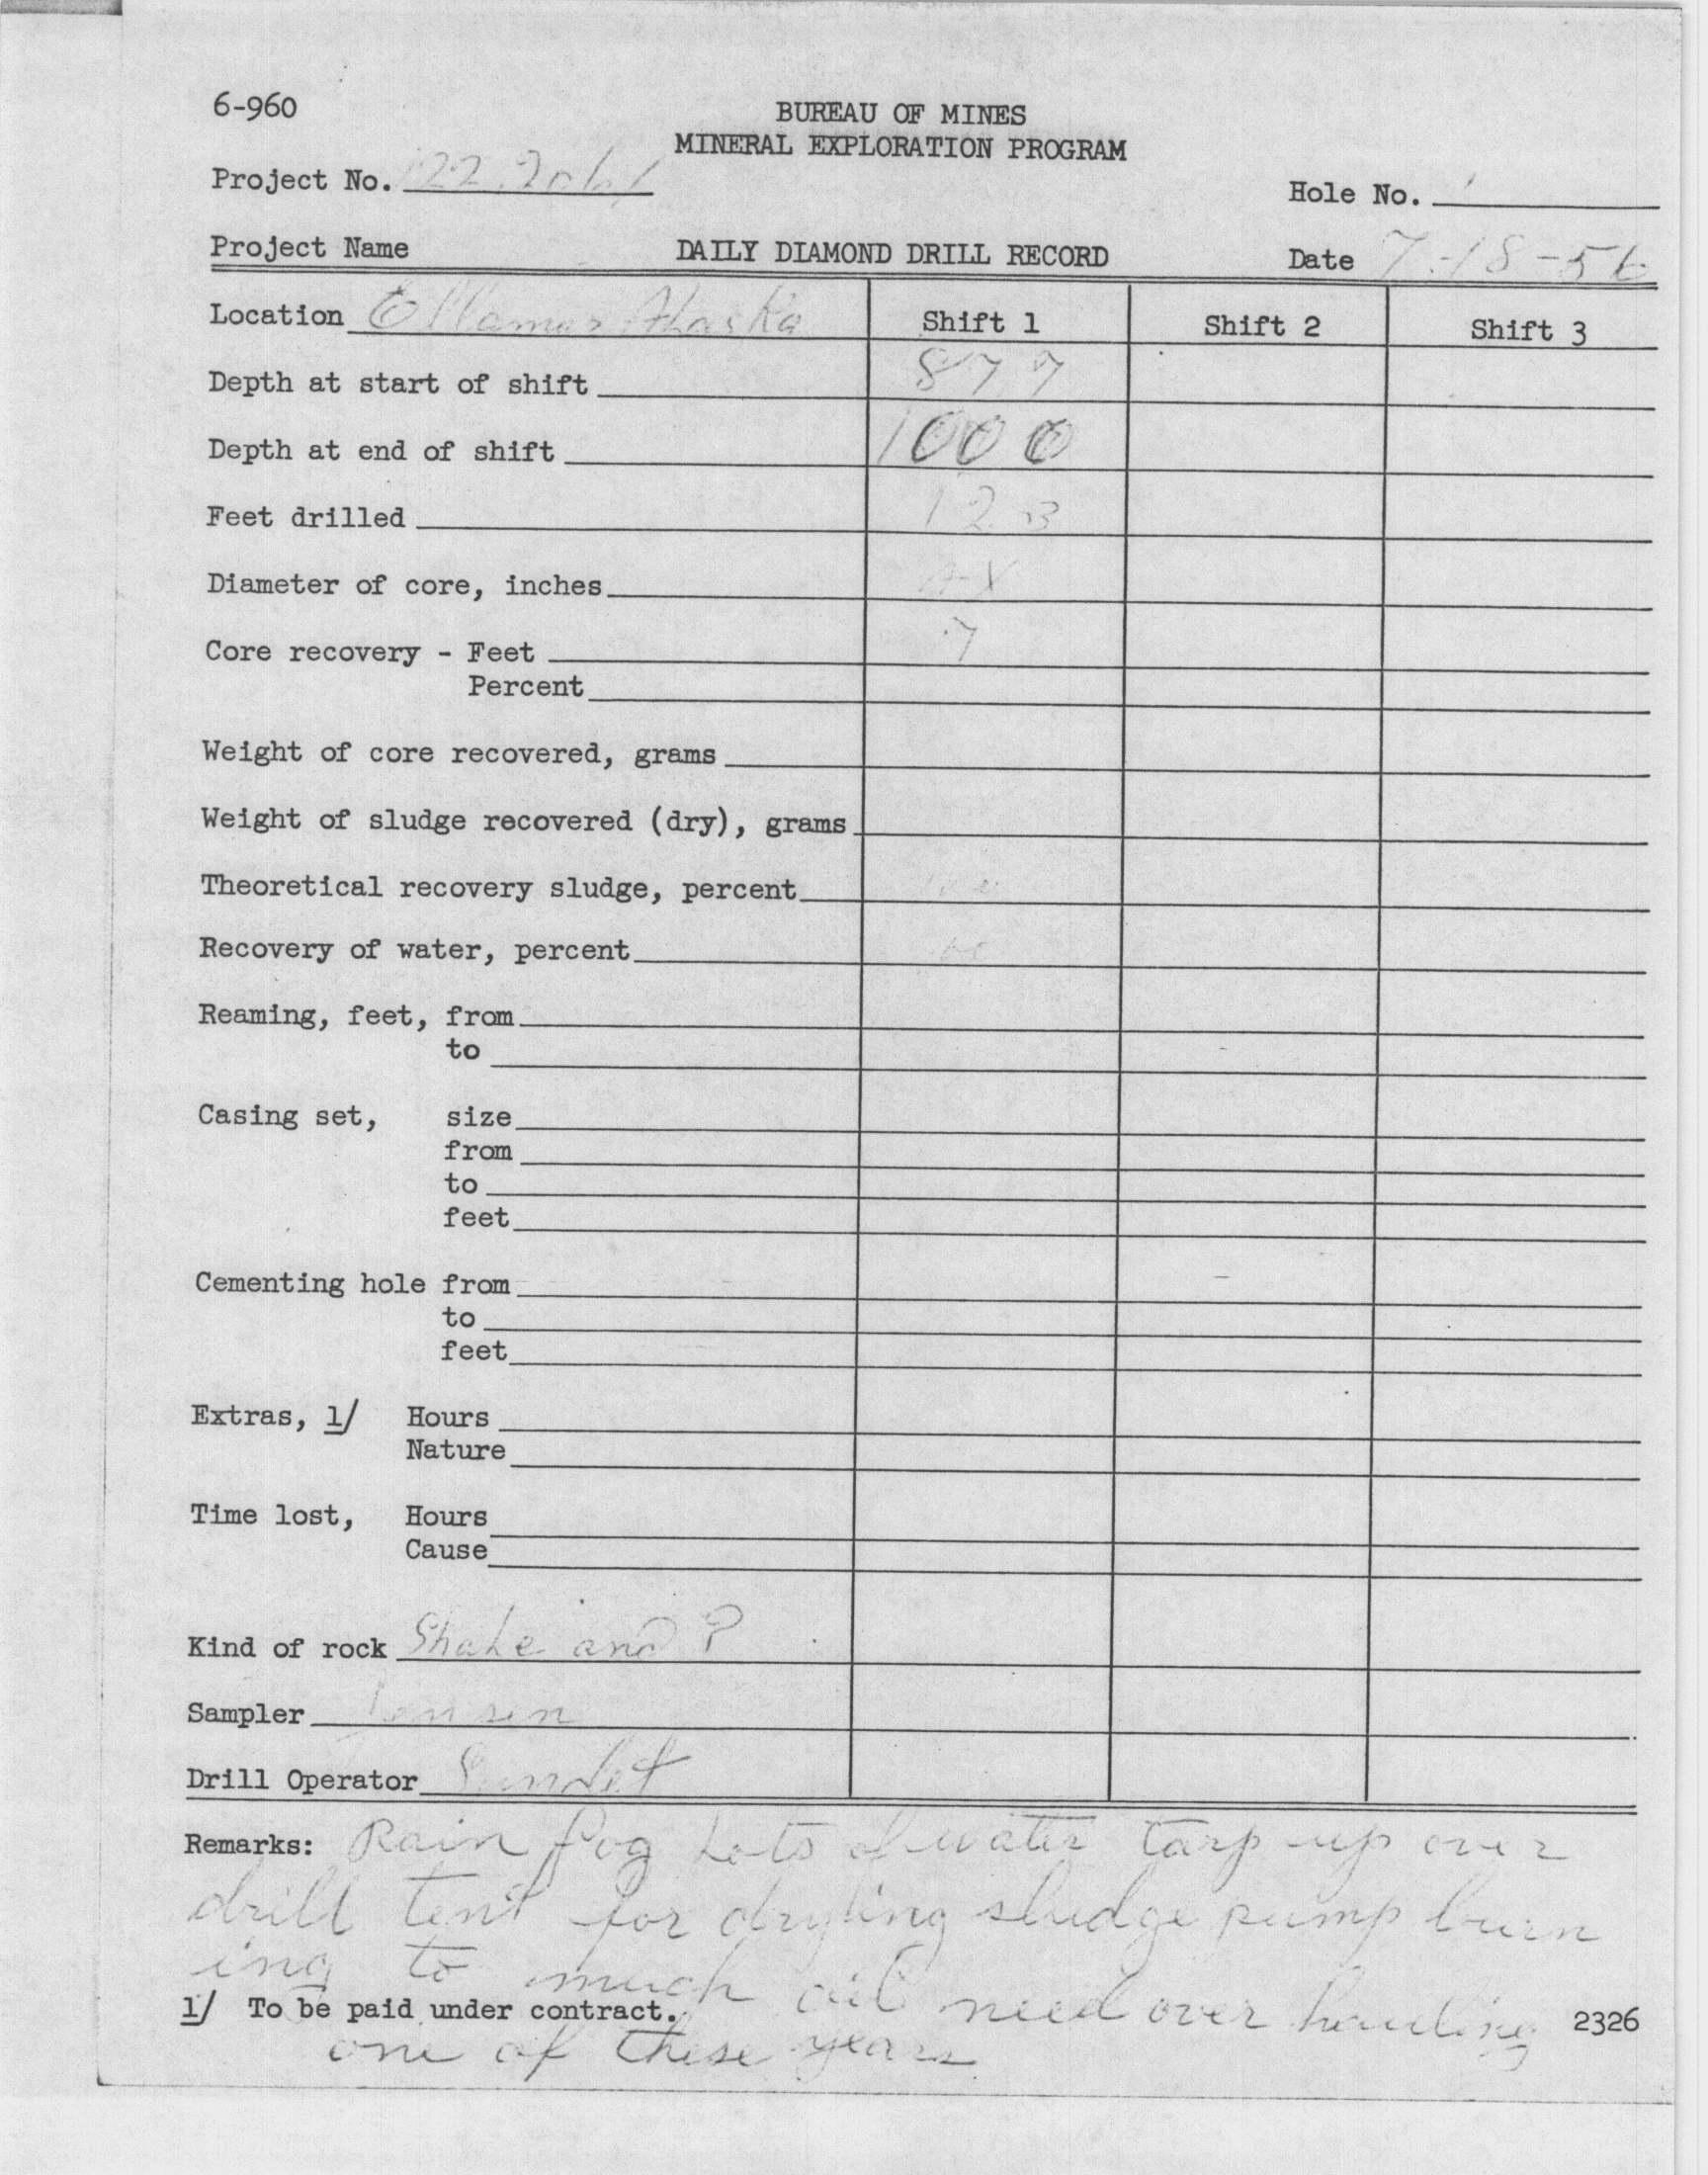 6-960
BUREAU OF MINES
MINERAL EXPLORATION PROGRAM
Project No.
Hole No. 1
Project Name DAILY DIAMOND DRILL RECORD Date 7-18-56
Location Ellamar Alaska Shift 1 Shift 2 Shift 3
Depth at start of shift 877
Depth at end of shift 1000
Feet drilled 123
Diameter of core, inches A-X
Core recovery - Feet 7
Percent
Weight of core recovered, grams
Weight of sludge recovered (dry), grams
Theoretical recovery sludge, percent
Recovery of water, percent
Reaming, feet, from
to
Casing set, size
from
to
feet
Cementing hole from
to
feet
Extras, 1/ Hours
Nature
Time lost, Hours
Cause
Kind of rock Shale and P
Sampler Jensen
Drill Operator
Remarks: Rain fog Lots of water tarp up over
drill tent for drying sludge pump burn
ing to much oil need over hauling
1/ To be paid under contract. 2326
one of these years